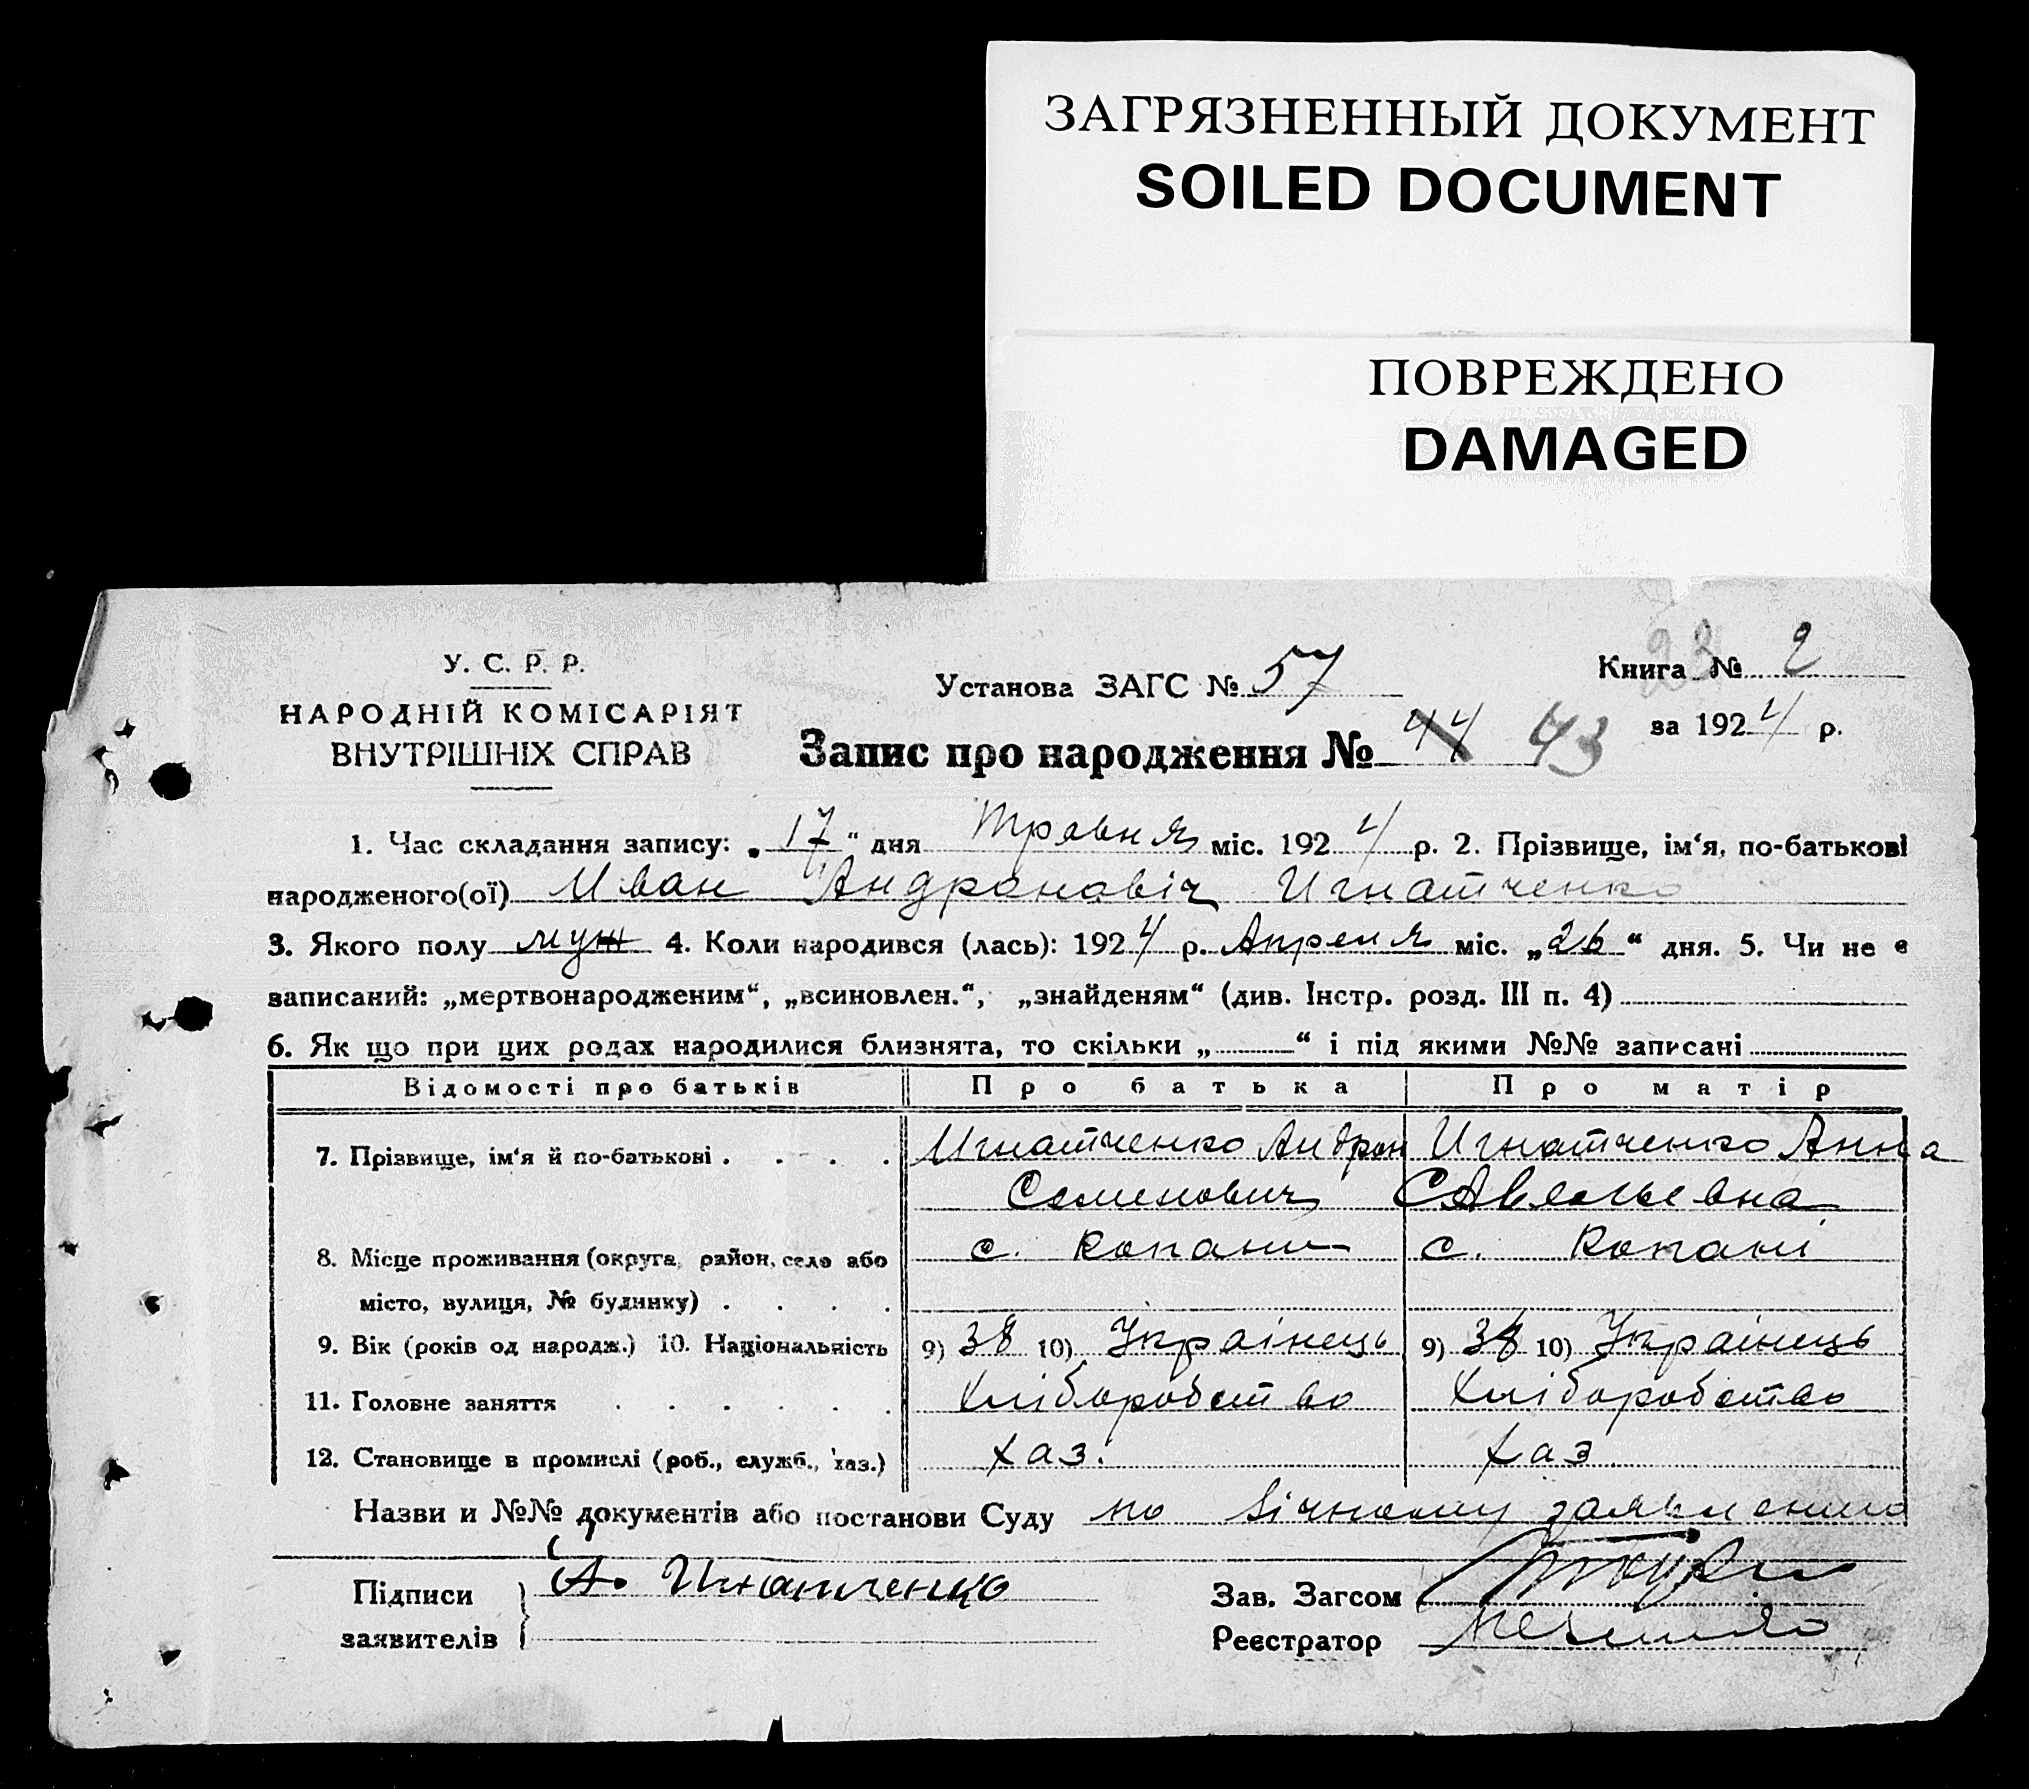 ЗАГРЯЗНЕННЫЙ ДОКУМЕНТ
SOILED DOCUMENT
ПОВРЕЖДЕНО
DAMAGED
У. С. Р. Р.
НАРОДНІЙ КОМІСАРІЯТ
ВНУТРІШНІХ СПРАВ
Установа ЗАГС № 57
23
Книга № 2
за 1924 р.
Запис про народження № 44 43
1. Час складання запису: „17“ дня Травня міс. 1924 р. 2. Прізвище, ім‘я, по-батькові
народженого(ої) Иван Андронавіч Игнатченко
3. Якого полу муж 4. Коли народився (лась): 1924 р. Апреля міс. „26“ дня. 5. Чи не є
записаний: „мертвонародженим“, „всиновлен.“, „знайденям“ (див. Інстр. розд. III п. 4)
6. Як що при цих родах народилися близнята, то скільки „ “ і під якими №№ записані
Відомості про батьків Про батька Про матір
7. Прізвище, ім‘я й по-батькові . . . . Игнатченко Андрон Игнатченко Анна
Семенович САвельевна
8. Місце проживання (округа, район, село або с. Копани с. Копані
місто, вулиця, № будинку) . . . .
9. Вік (років од народж.) 10. Національність 9) 38 10) Українець 9) 38 10) Українець
11. Головне заняття . . . . . . Хліборобство Хліборобство
12. Становище в промислі (роб., служб., хаз.) хаз. хаз
Назви и №№ документів або постанови Суду по вічному заявлению
Підписи А. Игнатченко Зав. Загсом
заявителів Реєстратор